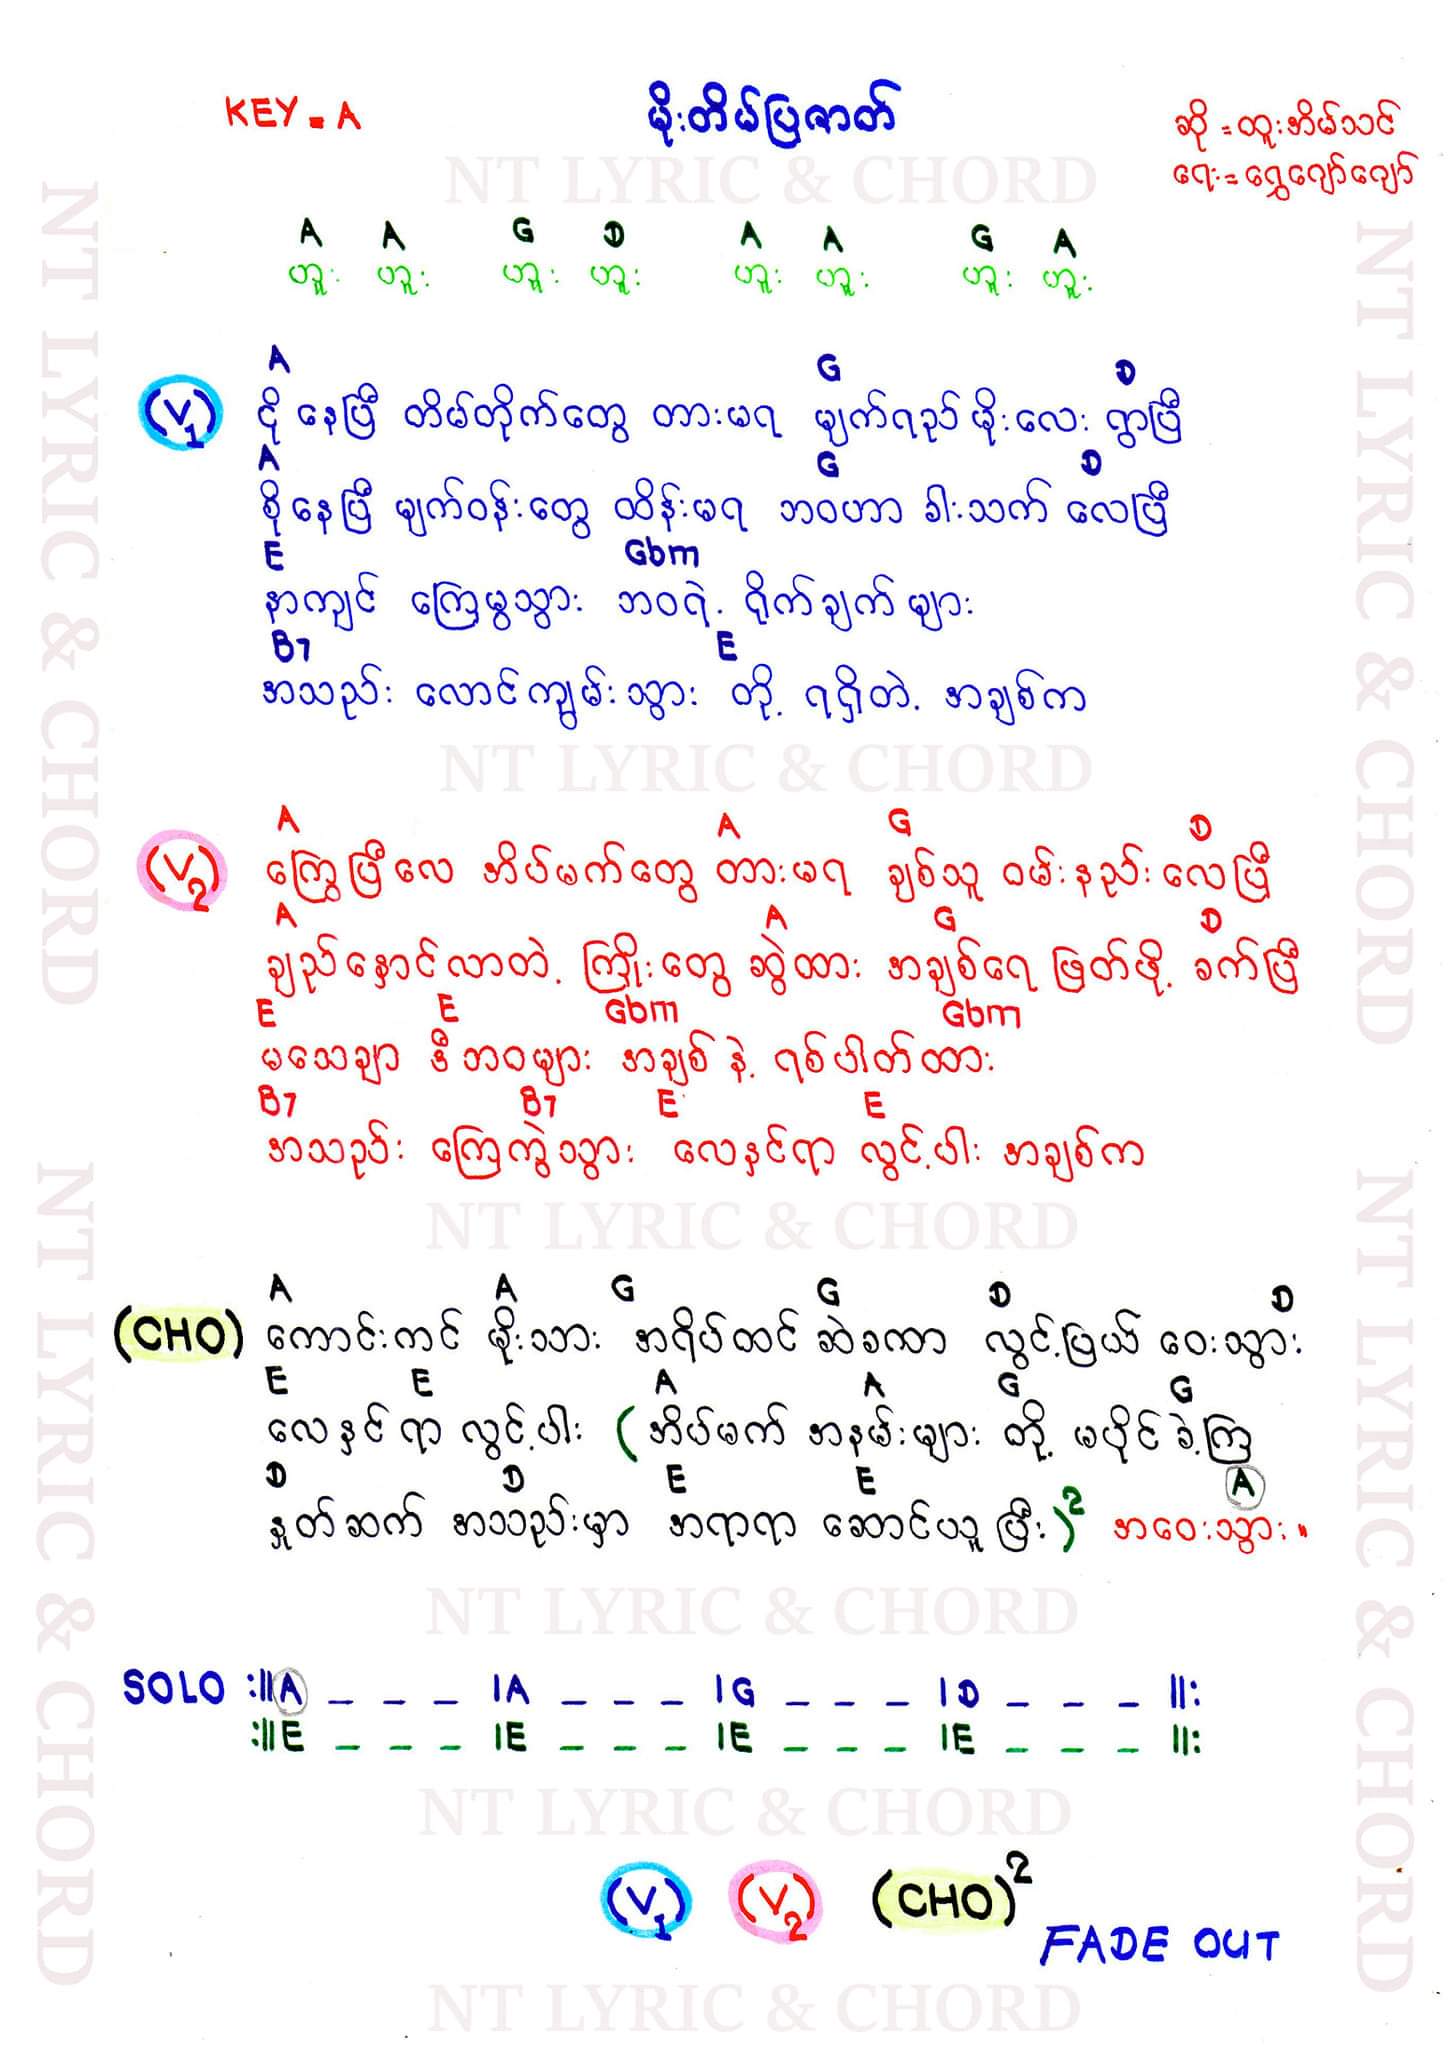 KEY = A
မိုးတိမ်ပြဇာတ်
ဆို = ထူးအိမ်သင်
ရေး = ရွှေဂျော်ဂျော်
NT LYRIC & CHORD
A A G D A A G A
ဟူး ဟူး ဟူး ဟူး ဟူး ဟူး ဟူး ဟူး
A G D
(V1) ငိုနေပြီ တိမ်တိုက်တွေ တားမရ မျက်ရည်မိုးလေး ရွာပြီ
A G D
စိုနေပြီ မျက်ဝန်းတွေ ထိန်းမရ ဘဝဟာ ခါးသက်လေပြီ
E Gbm
နာကျင် ကြေမွသွား ဘဝရဲ့ ရိုက်ချက်များ
B7 E
အသည်း လောင်ကျွမ်းသွား တို့ ရရှိတဲ့ အချစ်က
NT LYRIC & CHORD
A A G D
(V2) ကြွေပြီလေ အိပ်မက်တွေ တားမရ ချစ်သူ ဝမ်းနည်းလေပြီ
A A G D
ချည်နှောင်လာတဲ့ ကြိုးတွေ ဆွဲထား အချစ်ရေ ဖြတ်ဖို့ ခက်ပြီ
E E Gbm Gbm
မသေချာ ဒီဘဝများ အချစ်နဲ့ ရစ်ပါတ်ထား
B7 B7 E E
အသည်း ကြေကွဲသွား လေနှင်ရာ လွင့်ပါး အချစ်က
NT LYRIC & CHORD
A A G G D D
(CHO) ကောင်းကင် မိုးသား အရိပ်ထင် ဆဲခဏာ လွင့်ပြယ် ဝေးသွား
E E A A G G
လေနှင်ရာ လွင့်ပါး (အိပ်မက် အနမ်းများ တို့ မပိုင်ခဲ့ကြ
D D E E A
နှုတ်ဆက် အသည်းမှာ အရာရာ ဆောင်ယူပြီး)2 အဝေးသွား။
NT LYRIC & CHORD
SOLO :||A _ _ _ |A _ _ _ |G _ _ _ |D _ _ _ ||:
:||E _ _ _ |E _ _ _ |E _ _ _ |E _ _ _ ||:
NT LYRIC & CHORD
(V1) (V2) (CHO)2
FADE OUT
NT LYRIC & CHORD
NT LYRIC & CHORD
NT LYRIC & CHORD
NT LYRIC & CHORD
NT LYRIC & CHORD